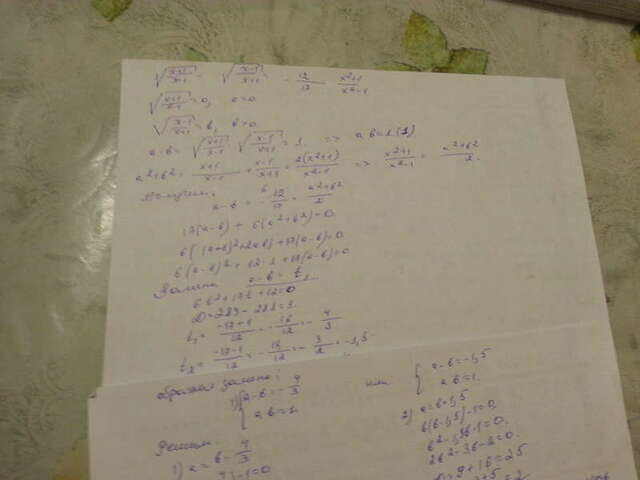 √((x+1)/(x-1)) - √((x-1)/(x+1)) = -12/17 · (x²+1)/(x²-1)
√((x+1)/(x-1)) = a, a>0
√((x-1)/(x+1)) = b, b>0
a·b = √((x+1)/(x-1)) · √((x-1)/(x+1)) = 1 => ab=1 (1)
a²+b² = (x+1)/(x-1) + (x-1)/(x+1) = 2(x²+1)/(x²-1) => (x²+1)/(x²-1) = (a²+b²)/2
Получим:
a-b = -12/17 · (a²+b²)/2
17(a-b) + 6(a²+b²)=0
6((a-b)²+2ab)+17(a-b)=0
6(a-b)²+12·1+17(a-b)=0
Замена a-b=t,
6t²+17t+12=0
D=289-288=1
t₁ = (-17+1)/12 = -16/12 = -4/3
t₂ = (-17-1)/12 = -18/12 = -3/2 = -1,5
обратная замена:
1) { a-b=-4/3
ab=1
или { a-b=-1,5
ab=1
Решим
1) a=b-4/3
2) a=b-1,5
b(b-1,5)-1=0
b²-1,5b-1=0
2b²-3b-2=0
D=9+16=25